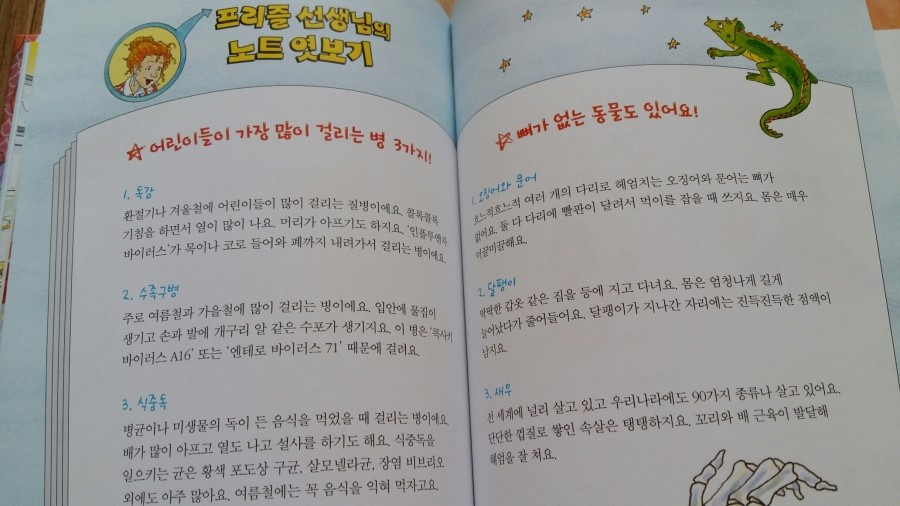 프리즐 선생님의
노트 엿보기
어린이들이 가장 많이 걸리는 병 3가지!
1. 독감
환절기나 겨울철에 어린이들이 많이 걸리는 질병이에요. 콜록콜록
기침을 하면서 열이 많이 나요. 머리가 아프기도 하지요. '인플루엔자
바이러스'가 목이나 코로 들어와 폐까지 내려가서 걸리는 병이에요.
2. 수족구병
주로 여름철과 가을철에 많이 걸리는 병이에요. 입안에 물집이
생기고 손과 발에 개구리 알 같은 수포가 생기지요. 이 병은 '콕사키
바이러스 A16' 또는 '엔테로 바이러스 71' 때문에 걸려요.
3. 식중독
병균이나 미생물의 독이 든 음식을 먹었을 때 걸리는 병이에요.
배가 많이 아프고 열도 나고 설사를 하기도 해요. 식중독을
일으키는 균은 황색 포도상 구균, 살모넬라균, 장염 비브리오
외에도 아주 많아요. 여름철에는 꼭 음식을 익혀 먹자고요.
뼈가 없는 동물도 있어요!
1. 오징어와 문어
흐느적흐느적 여러 개의 다리로 헤엄치는 오징어와 문어는 뼈가
없어요. 둘 다 다리에 빨판이 달려서 먹이를 잡을 때 쓰지요. 몸은 매우
미끌미끌해요.
2. 달팽이
딱딱한 갑옷 같은 집을 등에 지고 다녀요. 몸은 엄청나게 길게
늘어났다가 줄어들어요. 달팽이가 지나간 자리에는 진득진득한 점액이
남지요.
3. 새우
전 세계에 널리 살고 있고 우리나라에도 90가지 종류나 살고 있어요.
단단한 껍질로 쌓인 속살은 탱탱하지요. 꼬리와 배 근육이 발달해
헤엄을 잘 쳐요.